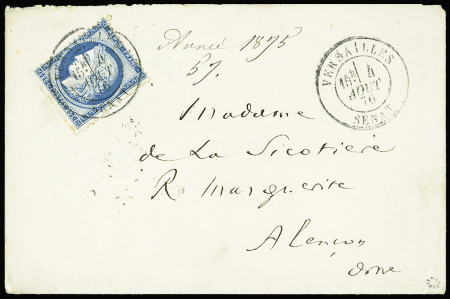 Année 1875
57.
VERSAILLES
4
AOUT
76
SENAT
Madame
de La Sicotière
R Marguerite
Alençon
Orne